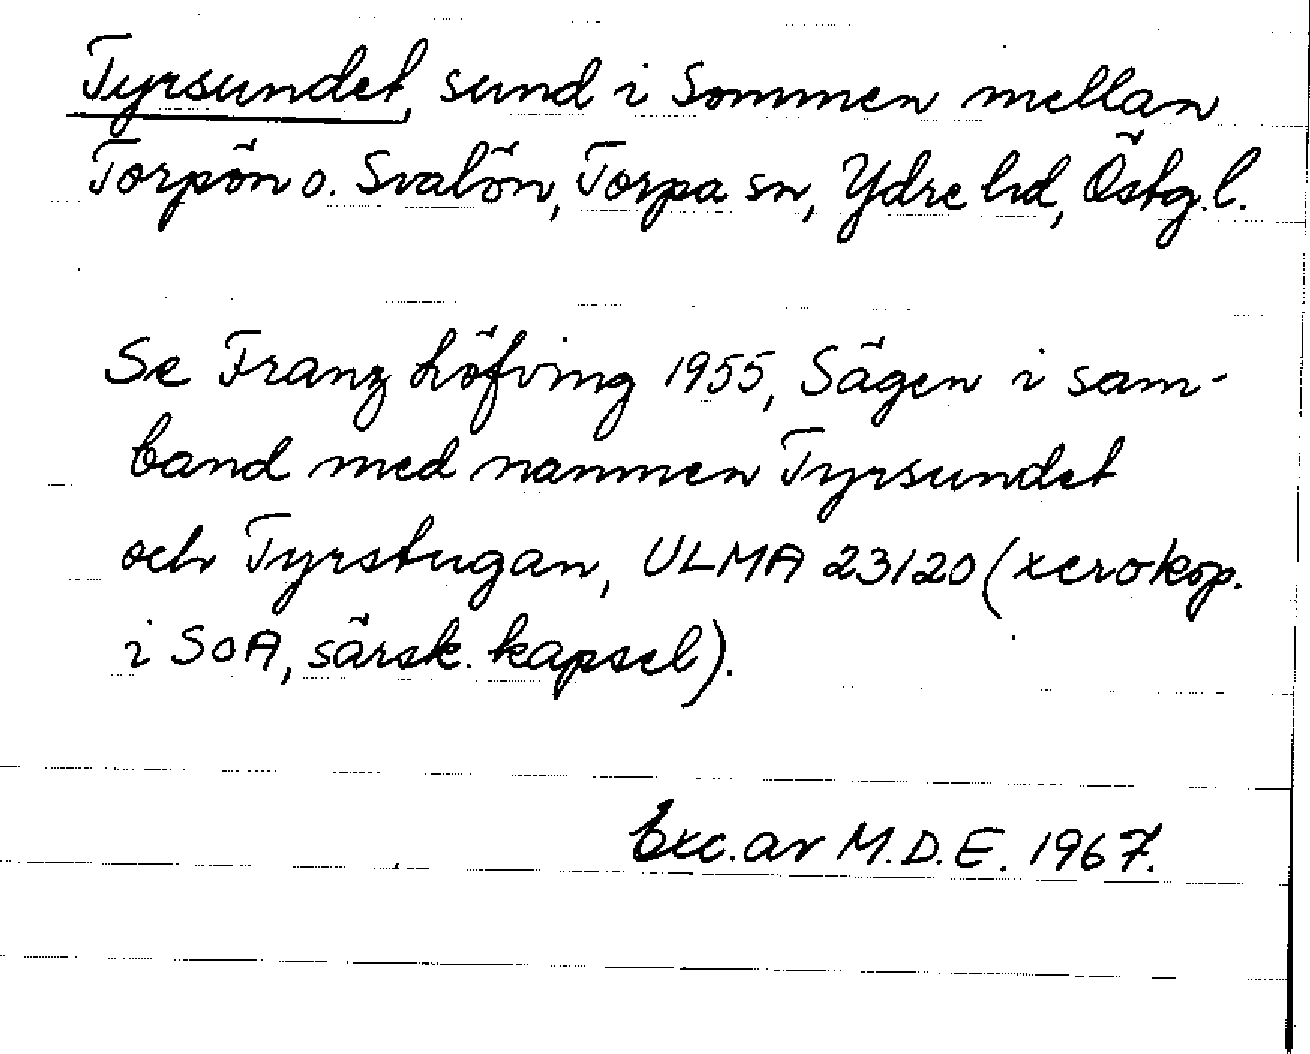 Tyrsundet, sund i Sommen mellan
Torpön o. Svalön, Torpa sn, Ydre hd, Östg.l.
Se Franz Löfving 1955, Sägen i sam-
band med namnen Tyrsundet
och Tyrstugan, ULMA 23120 (xerokop.
i SOA, särsk. kapsel).
Exc. av M.D.E. 1967.